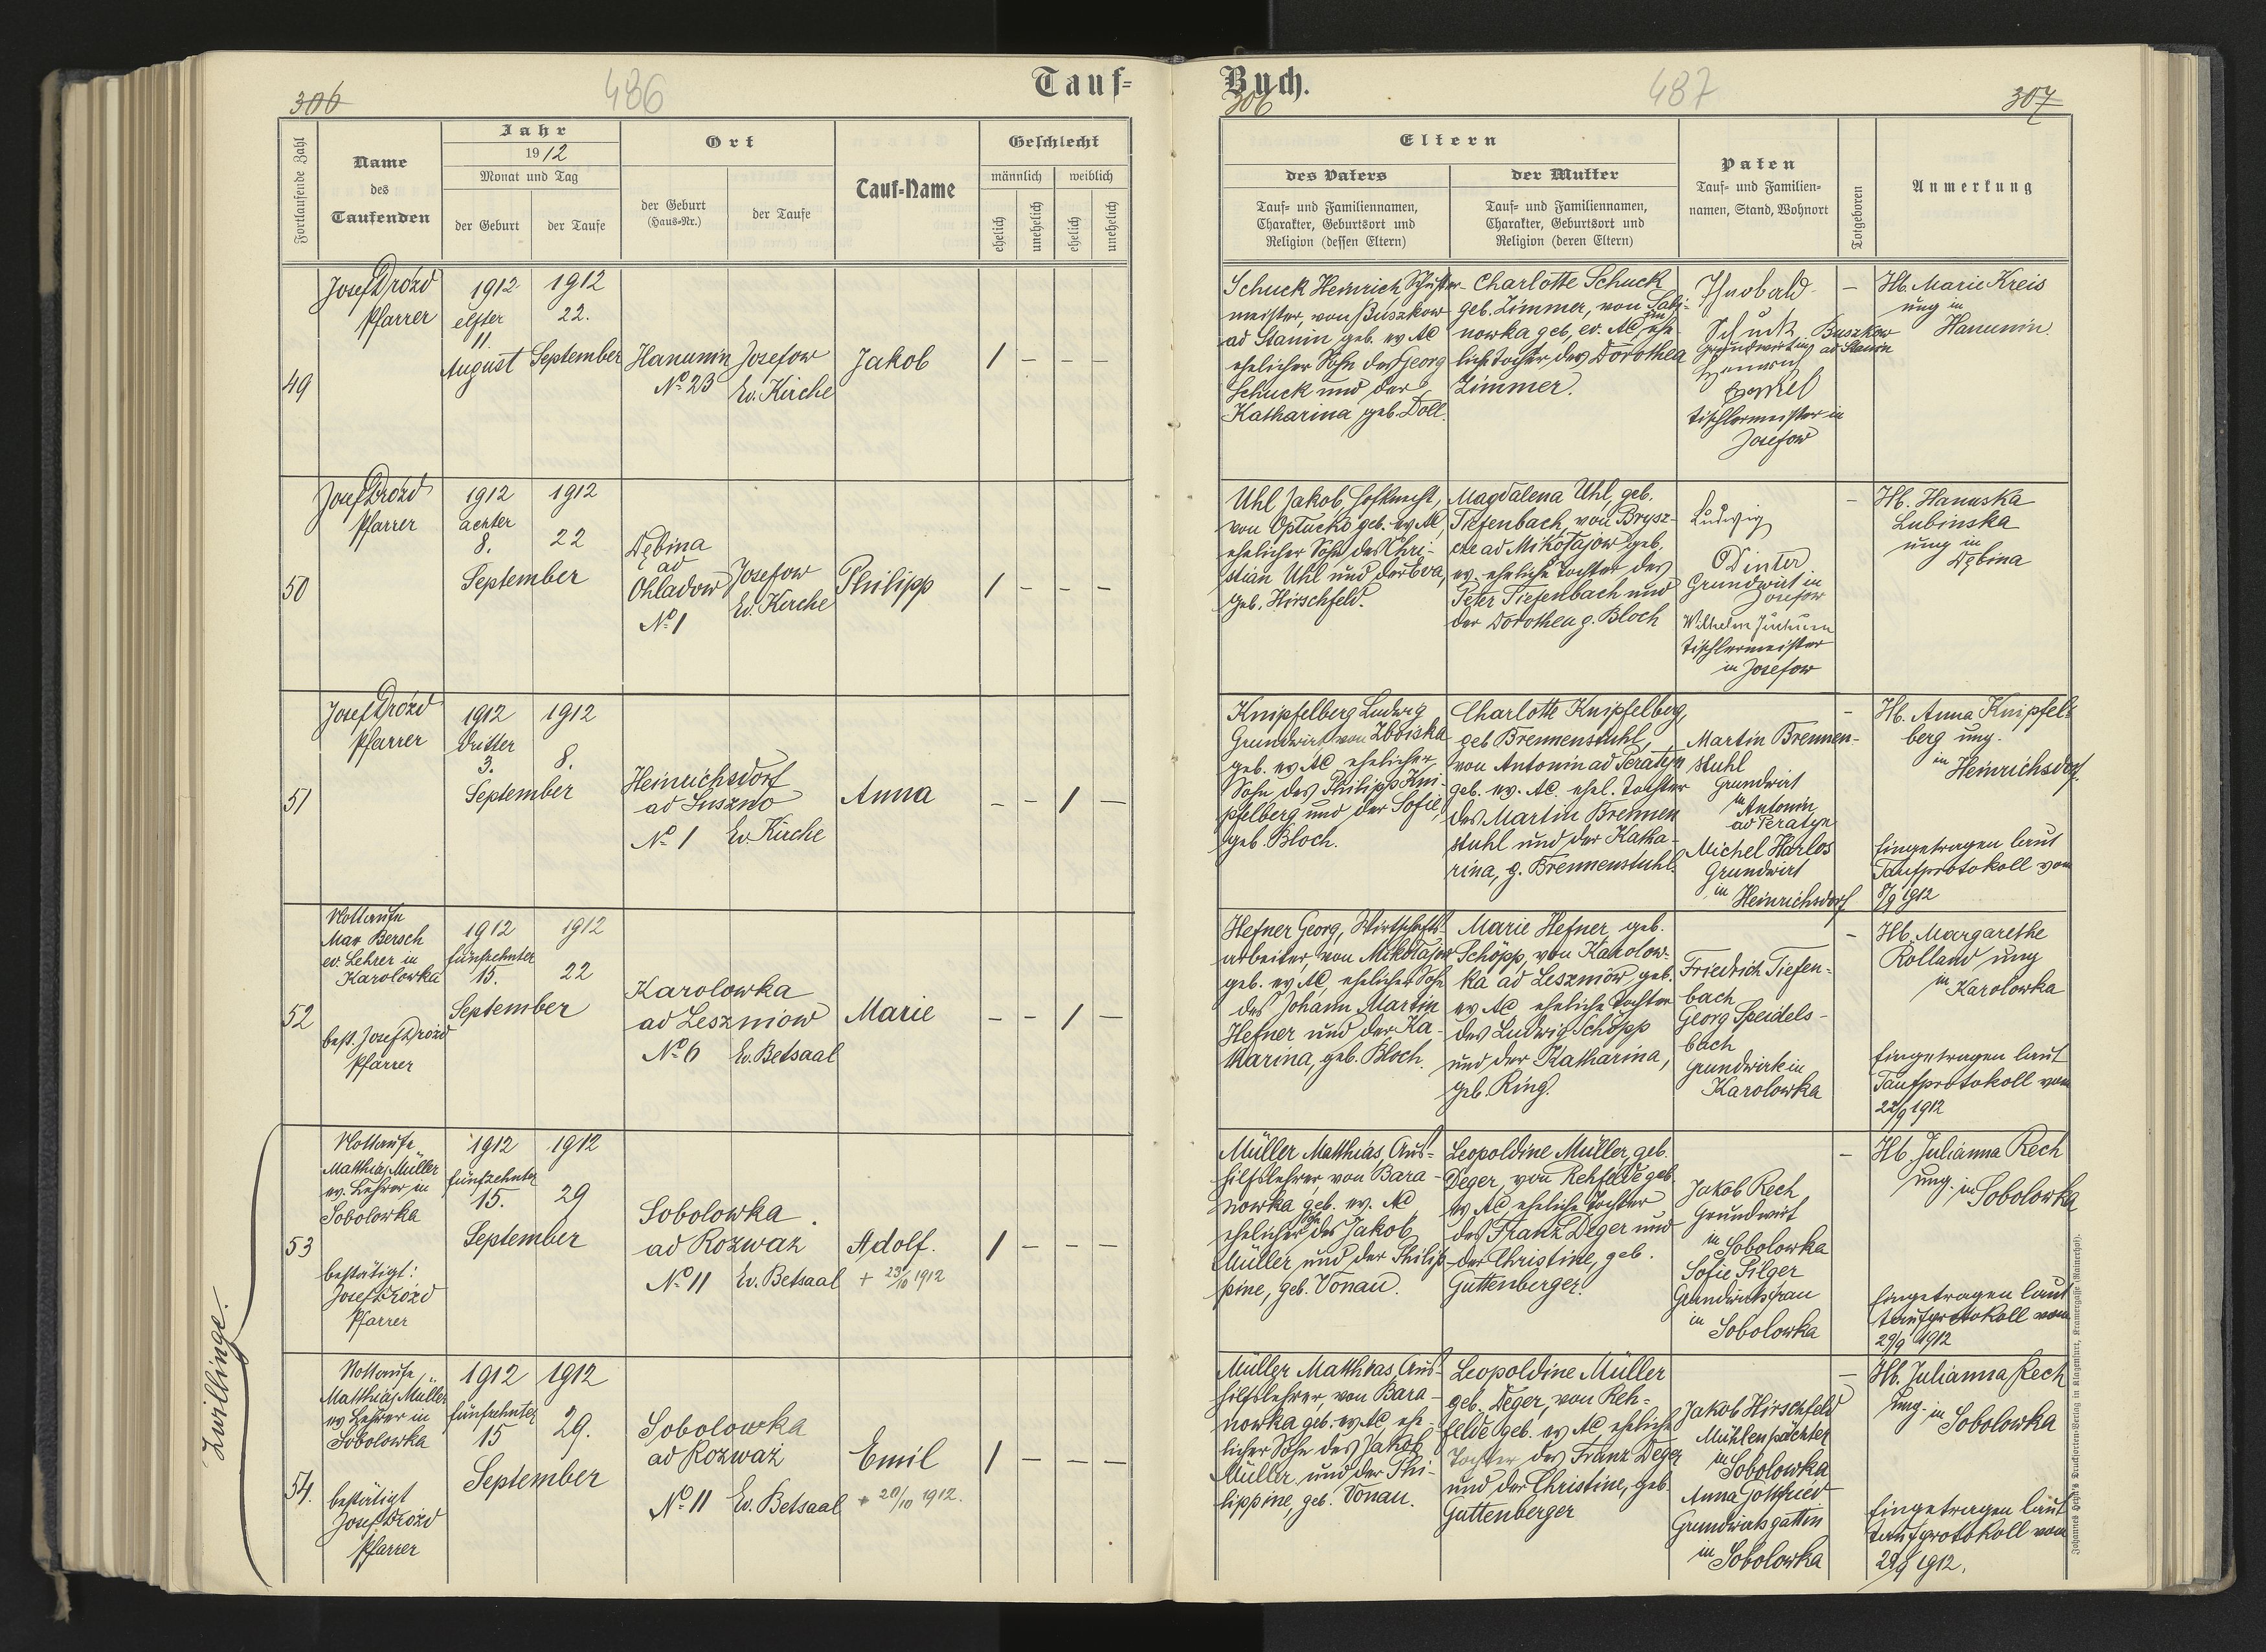 Tauf=
Buch.
306
486
306
487
307
Fortlaufende Zahl
Name
des
Taufenden
Jahr
1912
Monat und Tag
der Geburt
der Taufe
Ort
der Geburt
(Haus-Nr.)
der Taufe
Tauf-Name
Geschlecht
männlich
weiblich
ehelich
unehelich
ehelich
unehelich
Eltern
des Vaters
Tauf- und Familiennamen,
Charakter, Geburtsort und
Religion (dessen Eltern)
der Mutter
Tauf- und Familiennamen,
Charakter, Geburtsort und
Religion (deren Eltern)
Paten
Tauf- und Familien-
namen, Stand, Wohnort
Totgeboren
Anmerkung
49
Josef Drózd
Pfarrer
1912
elfter
11.
August
1912
22.
September
Hanunin
No 23
Josefow
Ev. Kirche
Jakob
1 – – –
Schuck Heinrich Schuster-
meister, von Buszkow
ad Stanin geb. ev AC
ehelicher Sohn des Georg
Schuck und der
Katharina geb. Doll.
Charlotte Schuck
geb. Zimmer, von
nowka geb, ev. AC, ehe-
liche Tochter der Dorothea
Zimmer.
Buszkow
ad Stanin
Tischlermeister in
Josefow
–
Hb. Marie Kreis
ung in
Hanunin
50
Josef Drózd
Pfarrer
1912
achter
8.
September
1912
22
Dębina
ad
Ohladow
No 1
Josefow
Ev. Kirche
Philipp
1 – – –
Uhl Jakob, Hofknecht,
von Opłucko geb. ev AC
ehelicher Sohn des Chri-
stian Uhl und der Eva,
geb. Hirschfeld.
Magdalena Uhl, geb.
Tiefenbach, von Brysz-
cze ad Mikołajow geb.
ev. eheliche Tochter des
Peter Tiefenbach und
der Dorothea g. Bloch
Ludwig
Dinter
Grundwirt in
Josefow
Wilhelm
Tischlermeister
in Josefow
–
Hb. Hanuska
Lubinska
ung in
Dębina
51
Josef Drózd
Pfarrer
1912
dritter
3.
September
1912
8.
Heinrichsdorf
ad Suszno
No 1
Ev. Kirche
Anna
– – 1 –
Knipfelberg Ludwig
Grundwirt von Zboiska
geb. ev. AC ehelicher
Sohn des Philipp Kni-
pfelberg und der Sofie,
geb. Bloch.
Charlotte Knipfelberg,
geb Brennenstuhl,
von Antonin ad Peratyn
geb. ev. AC. ehel. Tochter
des Martin Brennen
stuhl und der Katha-
rina, g. Brennenstuhl.
Martin Brennen-
stuhl
Grundwirt
in Antonin
ad Peratyn
Michel Harlos
Grundwirt
in Heinrichsdorf
–
Hb. Anna Knipfel-
berg ung.
in Heinrichsdorf
Eingetragen laut
Taufprotokoll vom
8/9 1912
52
Nottaufe
Max Bersch
ev. Lehrer in
Karolowka
best. Josef Drózd
Pfarrer
1912
fünfzehnter
15.
September
1912
22
Karolowka
ad Leszniow
No 6
Ev. Betsaal
Marie
– – 1 –
Hefner Georg, Wirtschafts-
arbeiter, von Mikołajow
geb. ev AC, ehelicher Sohn
des Johann Martin
Hefner und der Ka-
tharina, geb. Bloch.
Marie Hefner, geb.
Schöpp, von Karolow-
ka ad Leszniow geb.
ev AC eheliche Tochter
des Ludwig Schöpp
und der Katharina,
geb. Ring.
Friedrich Tiefen-
bach
Georg Speidels-
bach
Grundwirte in
Karolowka
–
Hb. Margarethe
Rolland ung
in Karolowka
Eingetragen laut
Taufprotokoll vom
22/9 1912
Zwillinge.
53
Nottaufe
Matthias Müller
ev. Lehrer in
Sobolowka
bestätigt:
Josef Drózd
Pfarrer
1912
fünfzehnter
15.
September
1912
29
Sobolowka
ad Rozwaz
No 11
Ev. Betsaal
Adolf.
+ 23/10 1912
1 – – –
Müller Matthias, Aus-
hilfslehrer von Bara-
nowka geb. ev. AC
ehelicher Sohn des Jakob
Müller und der Philip-
pine, geb. Vonau.
Leopoldine Müller, geb.
Deger, von Rehfelde geb.
ev AC, eheliche Tochter
des Franz Deger und
der Christine, geb.
Guttenberger.
Jakob Rech
Grundwirt
in Sobolowka
Sofie Pilger
Grundwirtsfrau
in Sobolowka
–
Hb Julianna Rech
ung. in Sobolowka
Eingetragen laut
Taufprotokoll vom
29/9 1912
54.
Nottaufe
Matthias Müller
ev Lehrer in
Sobolowka
bestätigt
Josef Drózd
Pfarrer
1912
fünfzehnter
15
September
1912
29.
Sobolowka
ad Rozważ
No 11
Ev. Betsaal
Emil
+ 20/10 1912.
1 – – –
Müller Matthias, Aus-
hilfslehrer, von Bara-
nowka geb. ev AC, ehe-
licher Sohn des Jakob
Müller und der Phi-
lippine, geb. Vonau.
Leopoldine Müller
geb. Deger, von Reh-
felde geb. ev AC, eheliche
Tochter des Franz Deger
und der Christine, geb.
Guttenberger
Jakob Hirschfeld
Mühlenpächter
in Sobolowka
Anna Gottfried
Grundwirtsgattin
in Sobolowka
–
Hb. Julianna Rech
ung. in Sobolowka
Eingetragen laut
Taufprotokoll vom
29/9 1912.